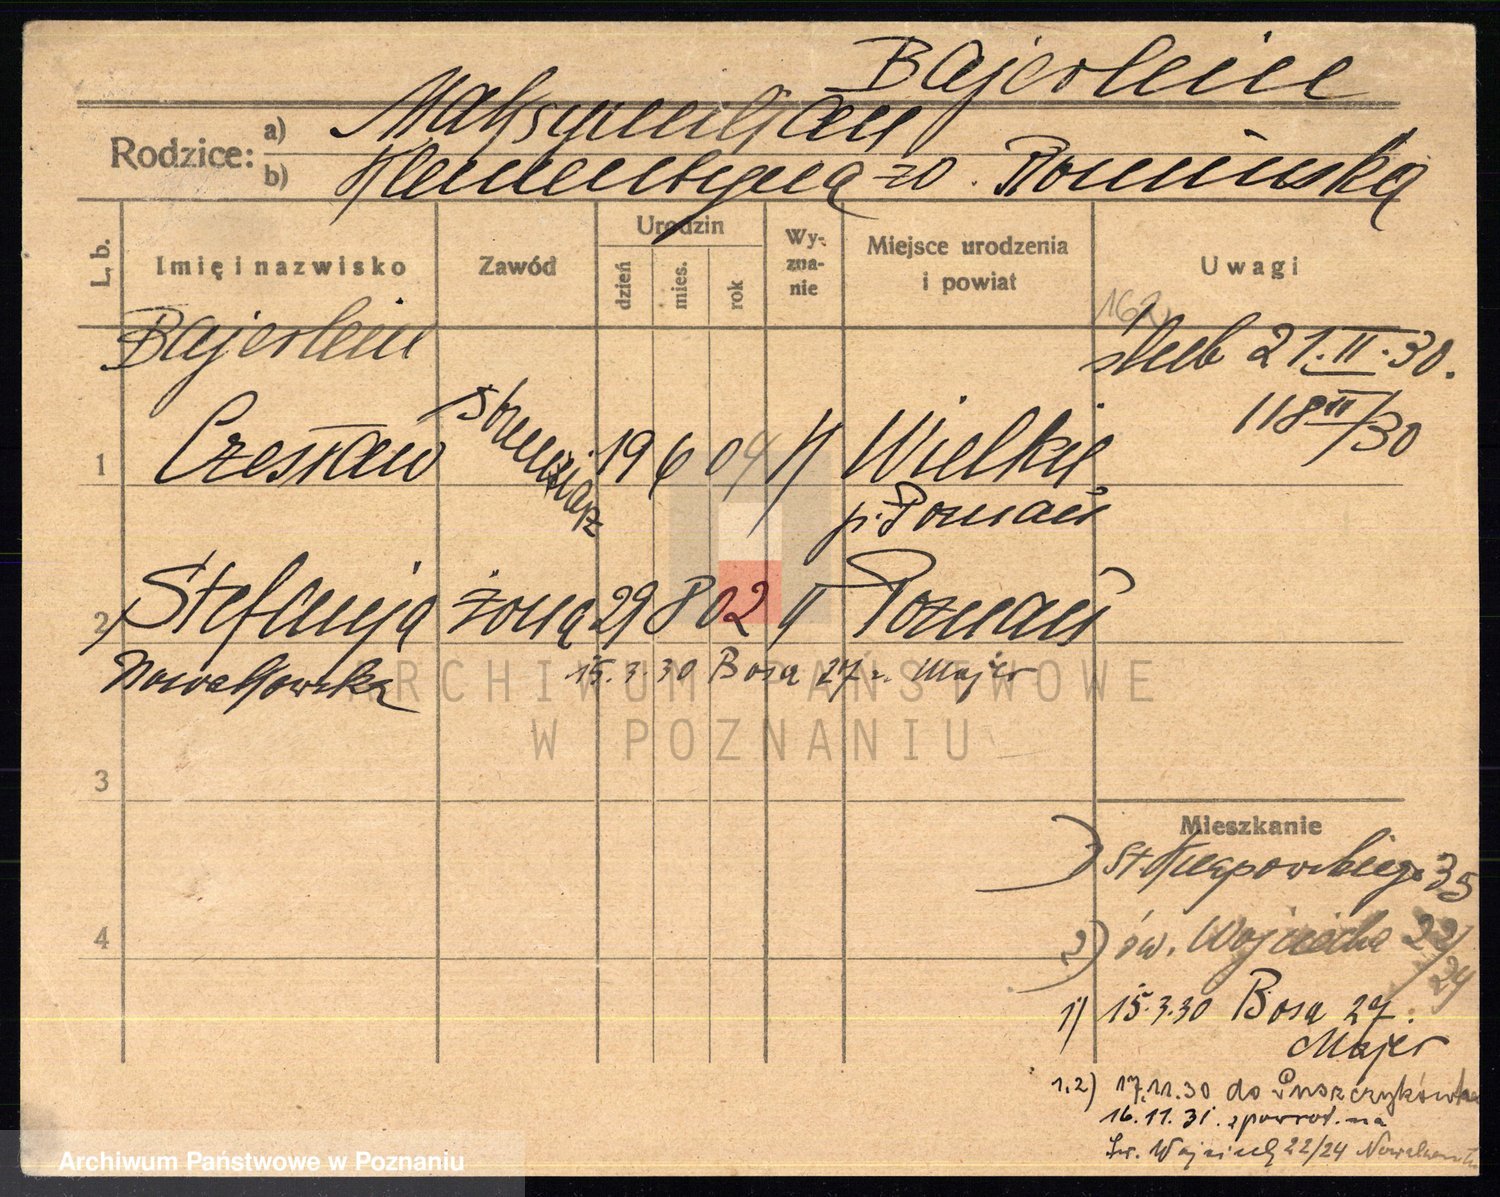 Bajerlein
Rodzice: a) Maksymiljan
b) Klementyna zd. Romińska
L. b.
Imię i nazwisko
Zawód
Urodzin
dzień
mies.
rok
Wy-
zna-
nie
Miejsce urodzenia
i powiat
Uwagi
162
Bajerlein
ślub 21.II.30.
118 II/30
1 Czesław 19 6 04 Wielkie
p. Poznań
2 Stefanja żona 29 8 02 Poznań
Nowakowska
15.3.30 Bosa 27 Majer
3
4
Mieszkanie
35
2) św. Wojciecha 22/24
1) 15.3.30 Bosa 27.
Majer
1.2) 17.11.30 do Puszczykówka
16.11.31. zpowrot. na
Św. Wojciech 22/24
ARCHIWUM PAŃSTWOWE
W POZNANIU
Archiwum Państwowe w Poznaniu